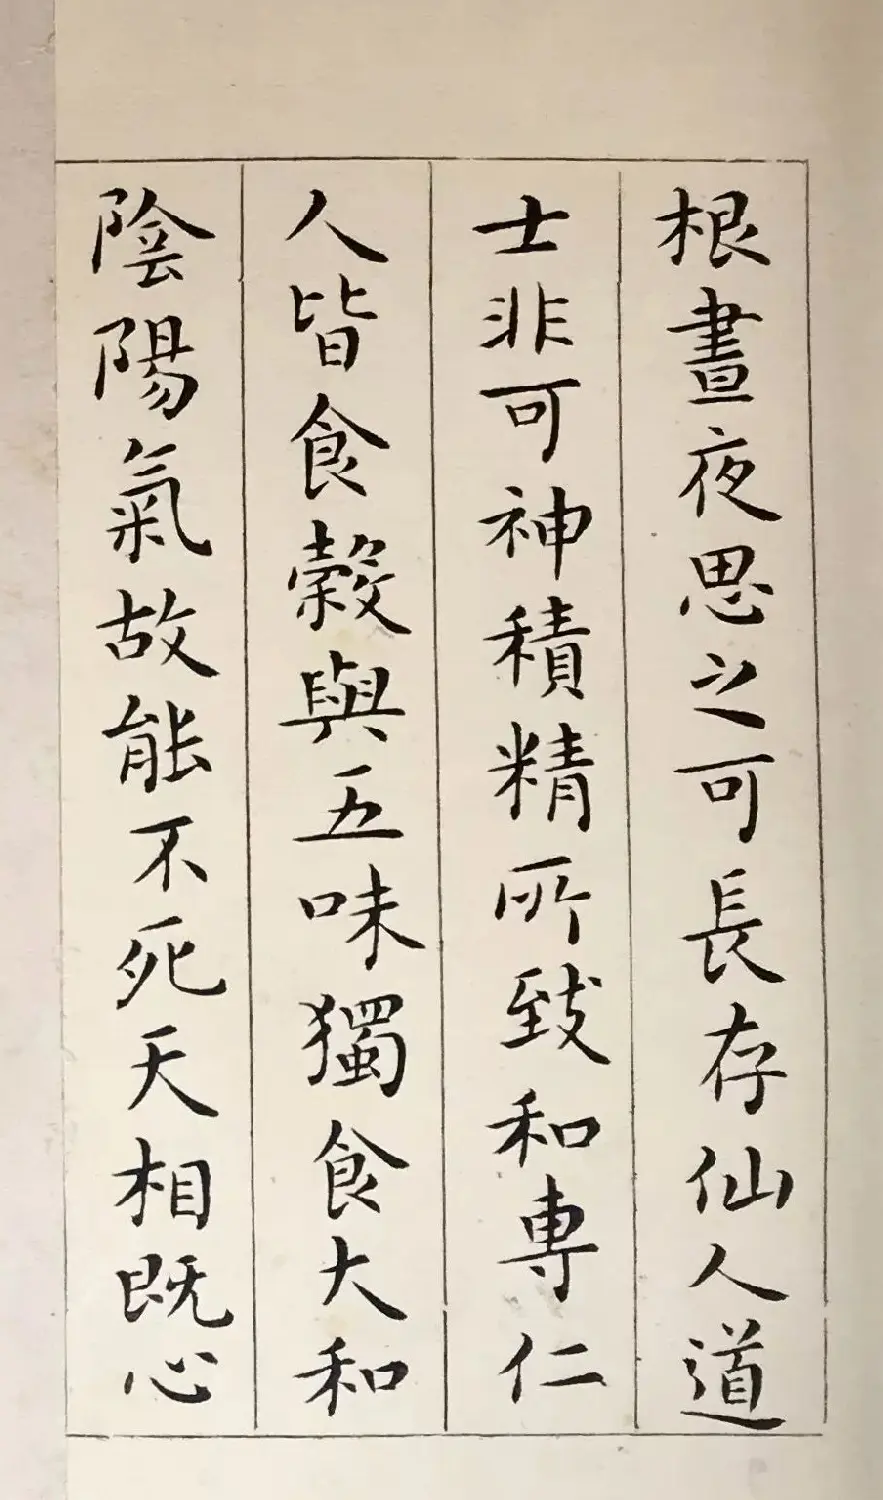 根晝夜思之可長存仙人道
士非可神積精所致和專仁
人皆食穀與五味獨食大和
陰陽氣故能不死天相既心